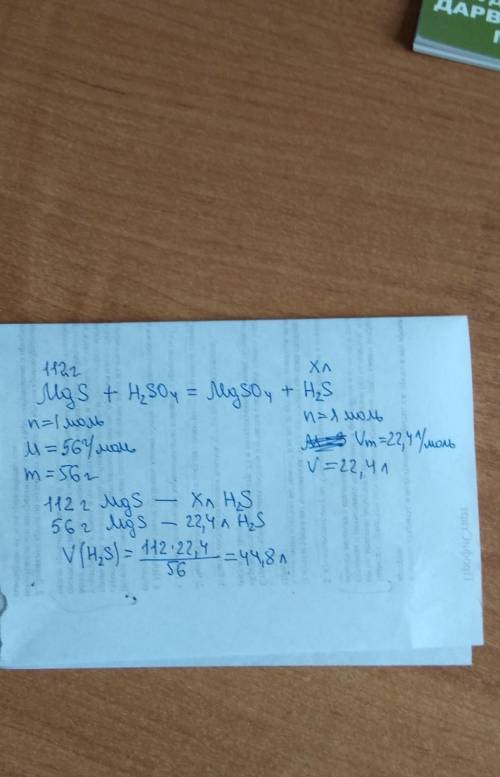 ДАРВ
112г
Xл
MgS + H₂SO₄ = MgSO₄ + H₂S
n=1 моль
n=1 моль
M=56г/моль
Vm=22,4л/моль
m=56г
V=22,4л
112 г MgS — Xл H₂S
56 г MgS — 22,4л H₂S
V(H₂S) = 112·22,4/56 = 44,8л